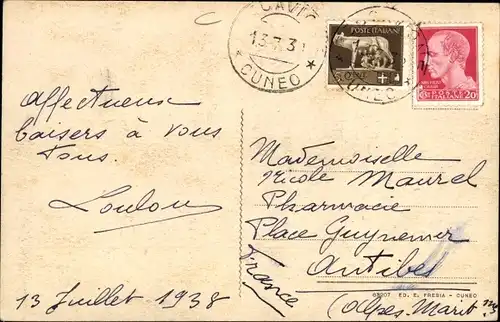 13.7.3
* CUNEO *
POSTE ITALIANE
POSTE ITALIANE
20
Affectueux
baisers à vous
tous.
Loulou
13 Juillet 1938
Mademoiselle
Nicole Maurel
Pharmacie
Place Guynemer
Antibes
(Alpes. Marit mes
France
ED. E. FRESIA - CUNEO